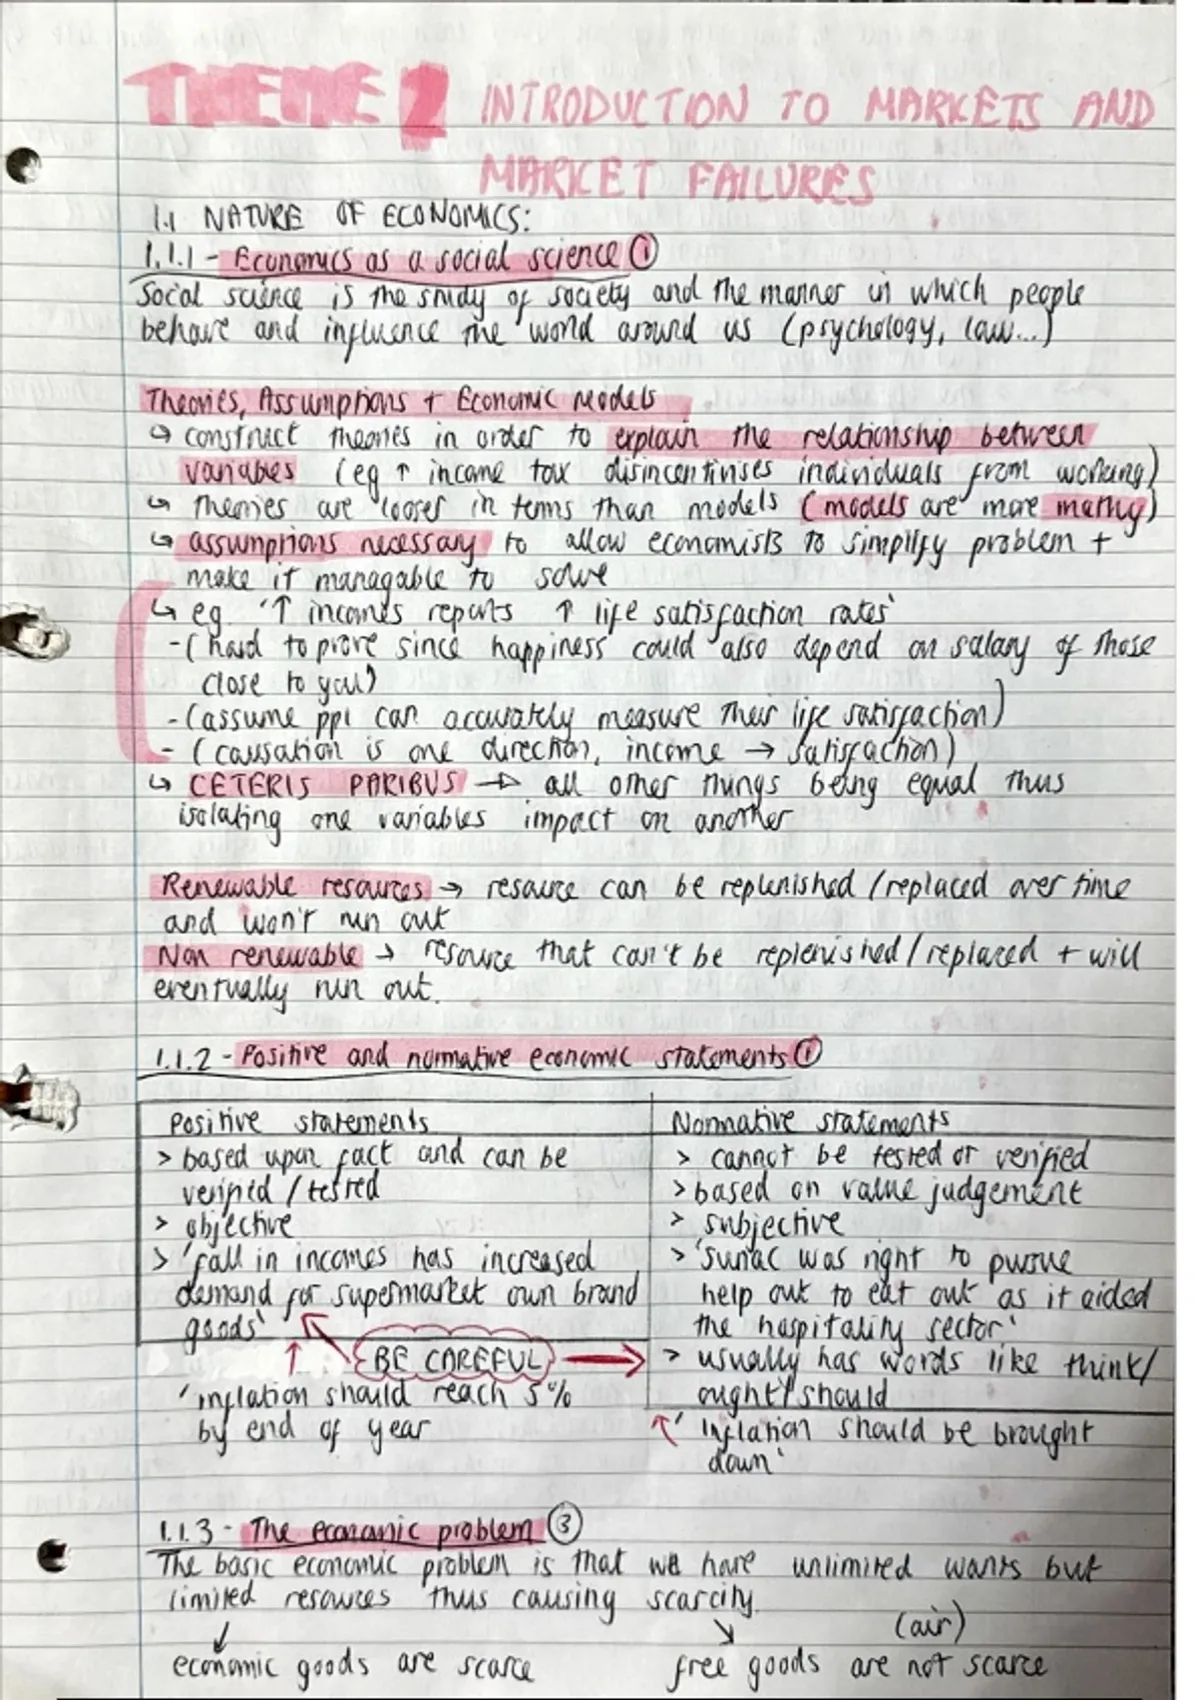 THEME 1 INTRODUCTION TO MARKETS AND
MARKET FAILURES
1.1 NATURE OF ECONOMICS:
1.1.1 - Economics as a social science ①
Social science is the study of society and the manner in which people
behave and influence the world around us (psychology, law...)
Theories, Assumptions + Economic models
↳ construct theories in order to explain the relationship between
variables (eg ↑ income tax disincentivises individuals from working)
↳ theories are looser in terms than models (models are more mathy)
↳ assumptions necessary to allow economists to simplify problem +
make it managable to solve
↳ eg. '↑ incomes reports ↑ life satisfaction rates'
-(hard to prove since happiness could also depend on salary of those
close to you)
-(assume ppl can accurately measure their life satisfaction)
- (causation is one direction, income → satisfaction)
↳ CETERIS PARIBUS → all other things being equal thus
isolating one variables impact on another
Renewable resources → resource can be replenished/replaced over time
and won't run out
Non renewable → resource that can't be replenished/replaced + will
eventually run out.
1.1.2 - Positive and normative economic statements ①
Positive statements
> based upon fact and can be
verified/tested
> objective
> 'fall in incomes has increased
demand for supermarket own brand
goods'
Normative statements
> cannot be tested or verified
> based on value judgement
> subjective
> 'sunac was right to pursue
help out to eat out as it aided
the hospitality sector'
> usually has words like think/
ought/should
BE CAREFUL
'inflation should reach 5%
by end of year
'inflation should be brought
down'
1.1.3 - The economic problem ③
The basic economic problem is that we have unlimited wants but
limited resources thus causing scarcity.
(air)
economic goods are scarce free goods are not scarce